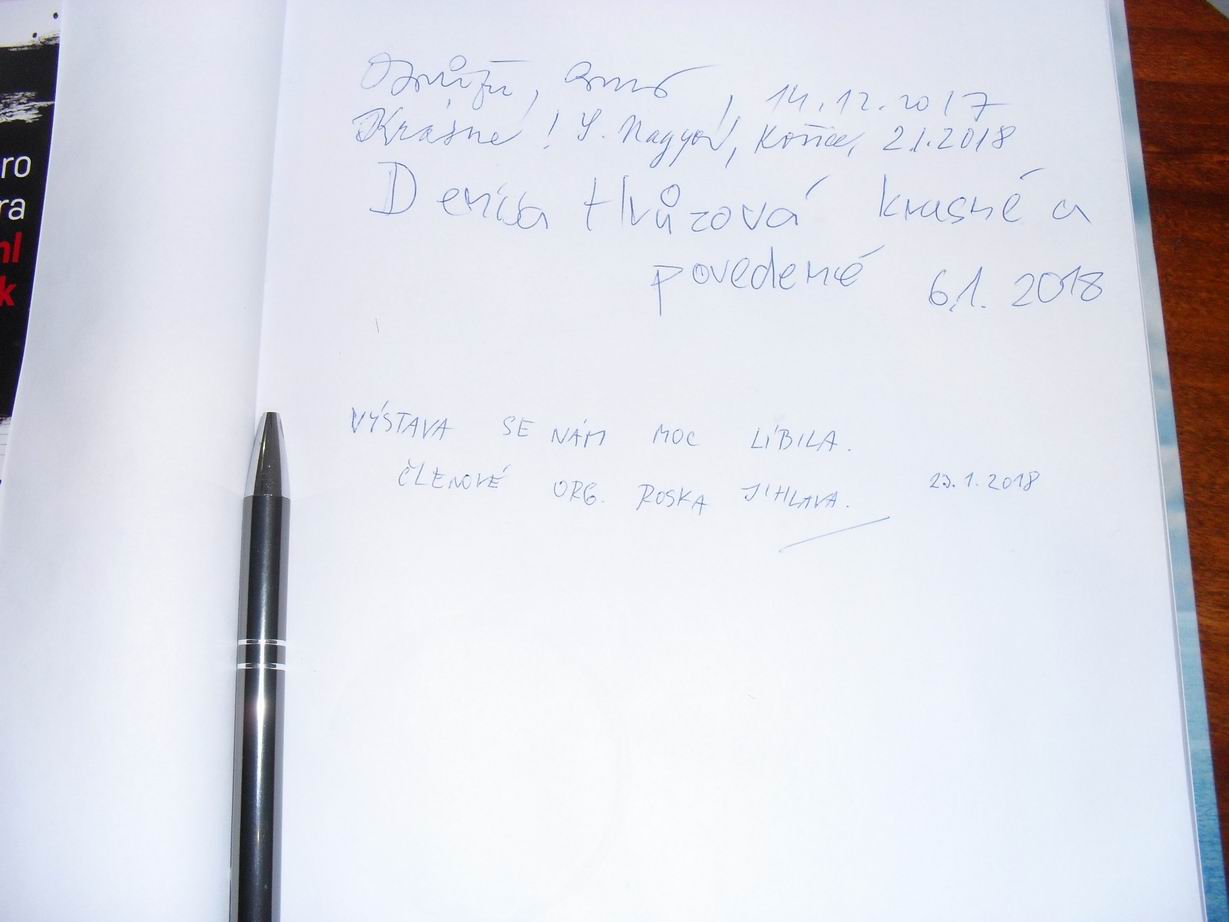 ro
ra
hl
k
, 14.12.2017
Krásné! Nagyová, Košice, 2.1.2018
Denisa Hvůzová krasné a
povedené 6.1. 2018
VÝSTAVA SE NÁM MOC LÍBILA.
ČLENOVÉ ORG. ROSKA JIHLAVA. 23.1.2018